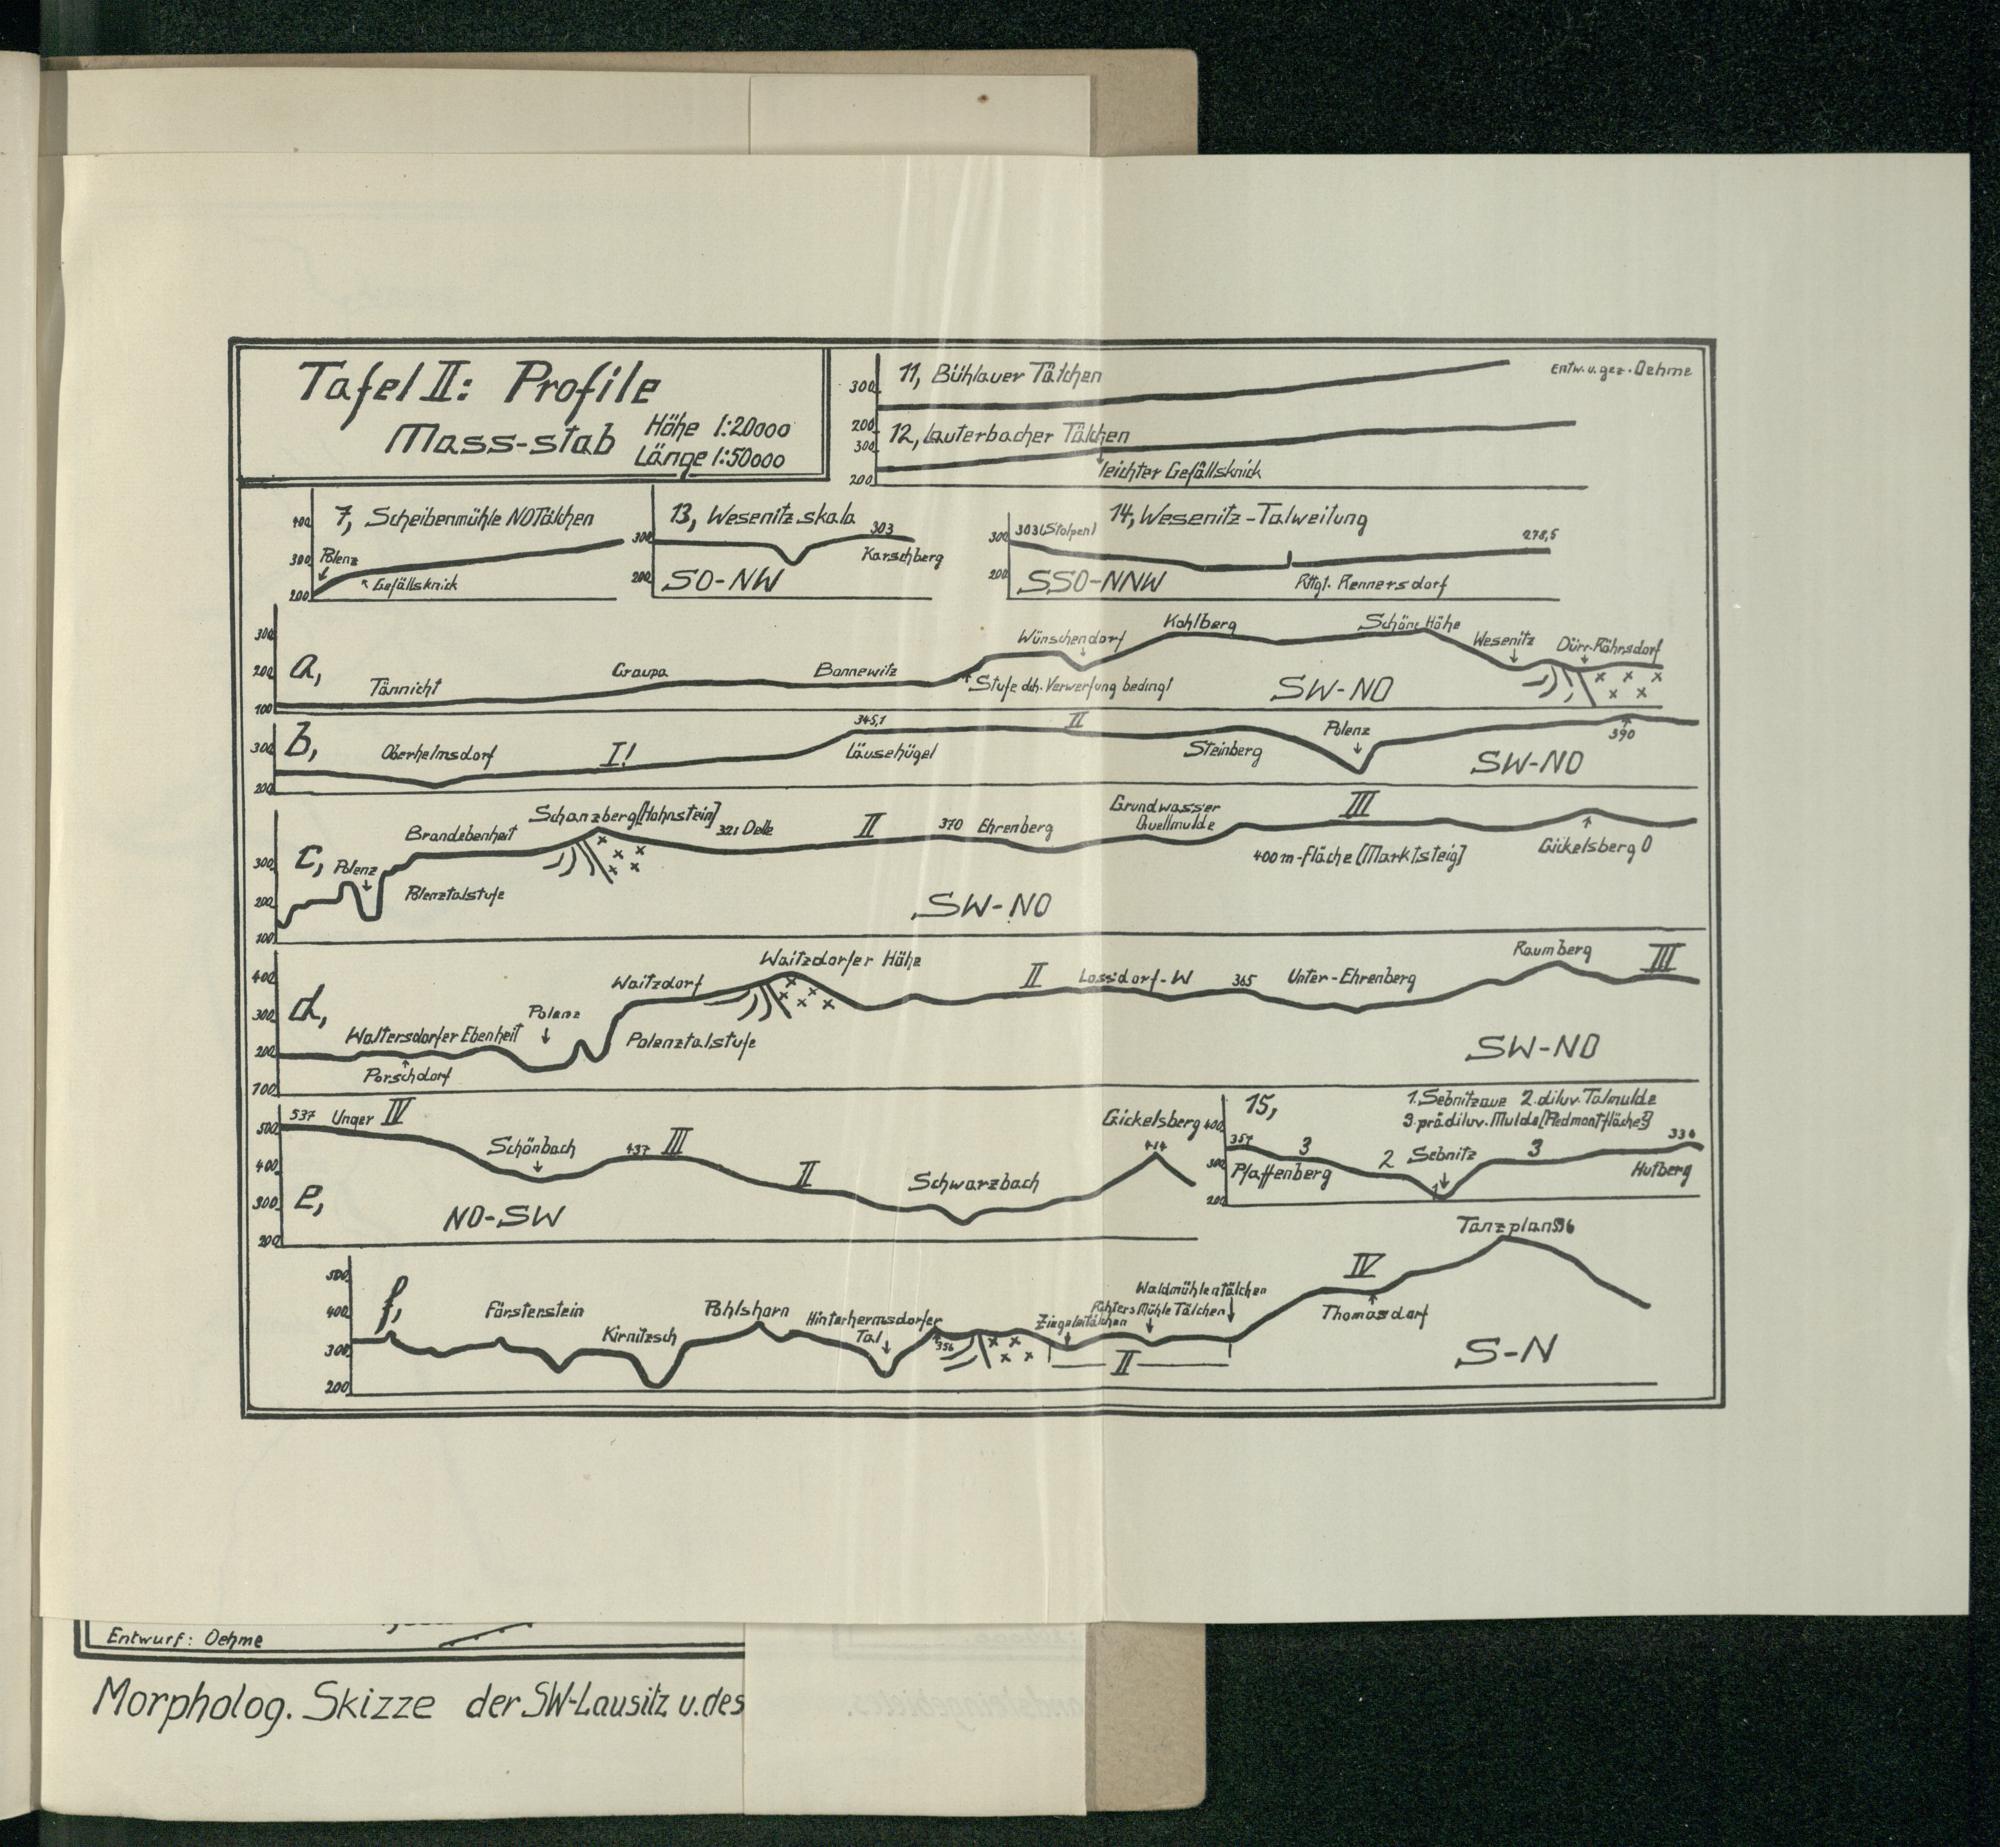 Tafel II: Profile
Mass-stab Höhe 1:20000
Länge 1:50000
11, Bühlauer Tälchen
Entw. u. gez. Oehme
300
200
12, Lauterbacher Tälchen
300
leichter Gefällsknick
200
7, Scheibenmühle NOTälchen
400
300
200
Polenz
Gefällsknick
13, Wesenitzskala
303
300
Karschberg
200
SO-NW
14, Wesenitz-Talweitung
300
303 (Stolpen)
278,5
200
SSO-NNW
Rttgt. Rennersdorf
a,
300
200
100
Tännicht
Graupa
Bonnewitz
Wünschendorf
Stufe dch. Verwerfung bedingt
Kohlberg
Schöne Höhe
Wesenitz
Dürr-Röhrsdorf
SW-NO
b,
300
200
Oberhelmsdorf
I!
345,1
Läusehügel
II
Steinberg
Polenz
390
SW-NO
c,
300
200
100
Polenz
Brandebenheit
Polenztalstufe
Schanzberg [Hohnstein]
321 Delle
II
370 Ehrenberg
Grundwasser
Quellmulde
III
400 m-Fläche [Marktsteig]
Gickelsberg O
SW-NO
d,
400
300
200
100
Waltersdorfer Ebenheit
Porschdorf
Polenz
Waitzdorf
Polenztalstufe
Waitzdorfer Höhe
II
Lossdorf-W
365
Unter-Ehrenberg
Raumberg
III
SW-NO
e,
500
400
300
200
537 Unger IV
Schönbach
437 III
II
Schwarzbach
Gickelsberg
414
NO-SW
15,
1. Sebnitzaue 2. diluv. Talmulde
3. prädiluv. Mulde [Piedmontfläche?]
400
300
200
357
Pfaffenberg
3
2
Sebnitz
1
3
334
Hutberg
f,
500
400
300
200
Försterstein
Kirnitzsch
Pohlshorn
Hinterhermsdorfer
Tal
356
Ziegeleitälchen
Richters Mühle Tälchen
Waldmühlentälchen
II
IV
Thomasdorf
Tanzplan 596
S-N
Entwurf: Oehme
Morpholog. Skizze der SW-Lausitz u. des